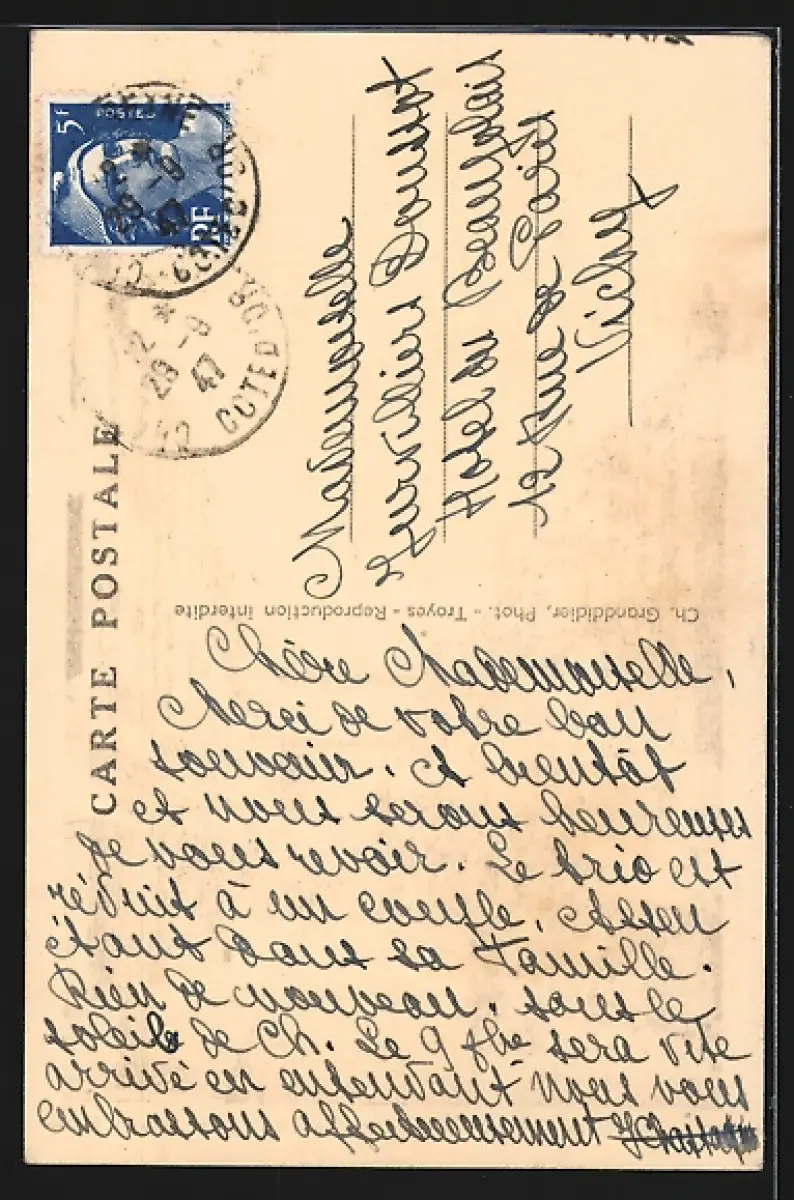 5F
POSTES
RF
12 *
29-9
47
COTE D'OR
CARTE POSTALE
Mademoiselle
Hotel du Beaujolais
12 Rue de Paris
Vichy
Ch. Granddidier, Phot. - Troyes - Reproduction interdite
Chère Mademoiselle,
Merci de votre bon
souvenir. A bientôt
et nous serons heureuses
de vous revoir. Le trio est
réduit à un couple,
étant dans sa famille.
Rien de nouveau, sous le
soleil de Ch. Le 9 8bre sera vite
arrivé en attendant nous vous
embrassons affectueusement